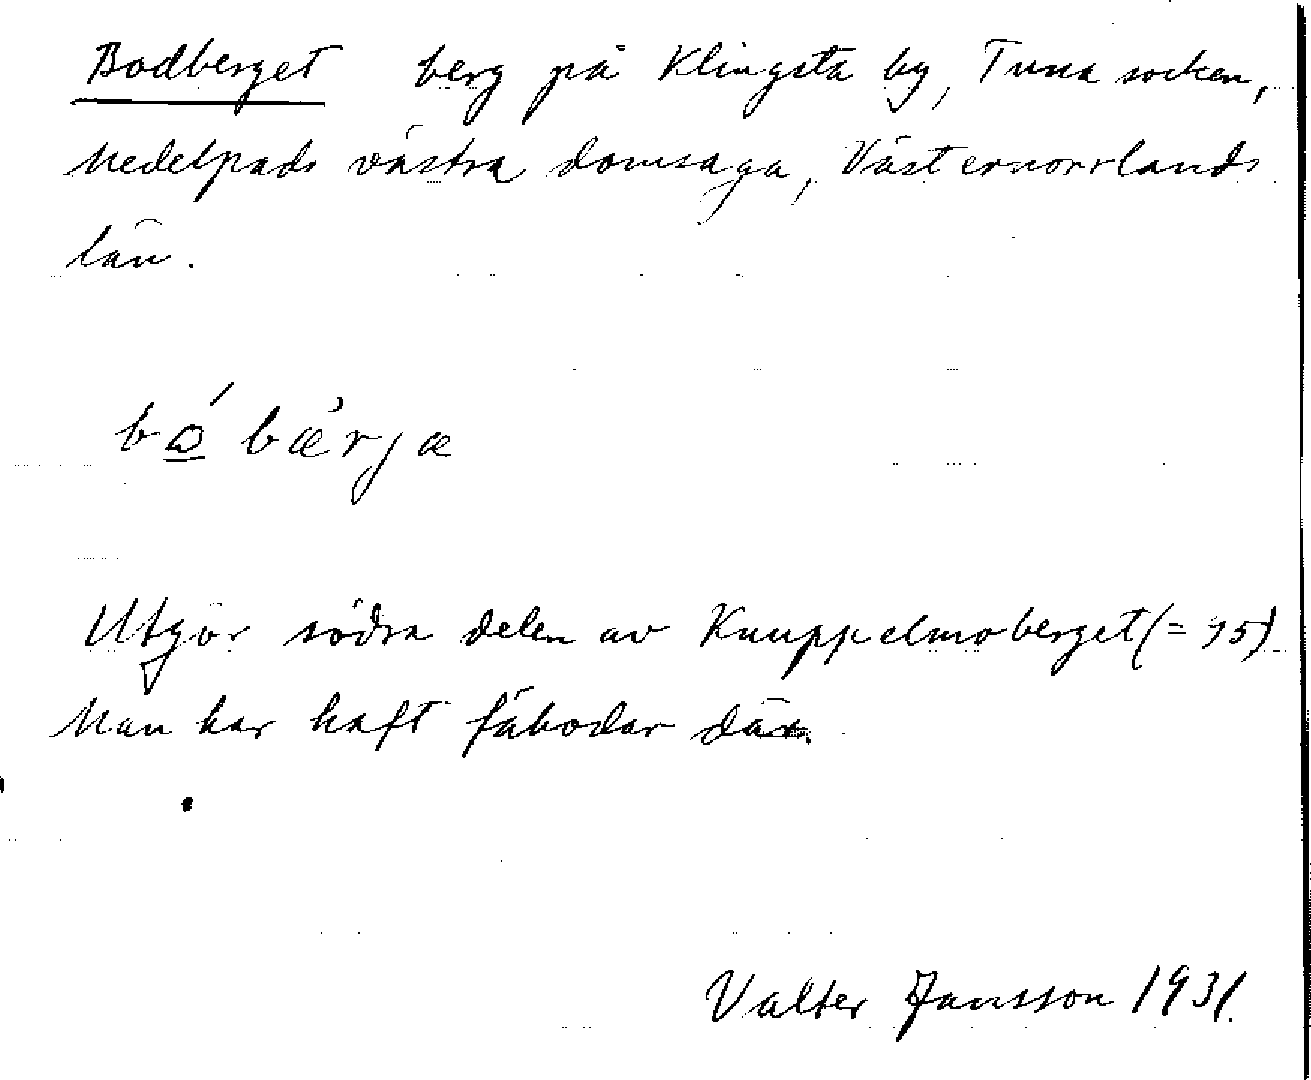 Bodberget berg på Klingsta by, Tuna socken,
Medelpads västra domsaga, Västernorrlands
län.
bó̲ bæ̀rjæ
Utgör södra delen av Knuppelmoberget (= 95)
Man har haft fäbodar där.
Valter Jansson 1931.